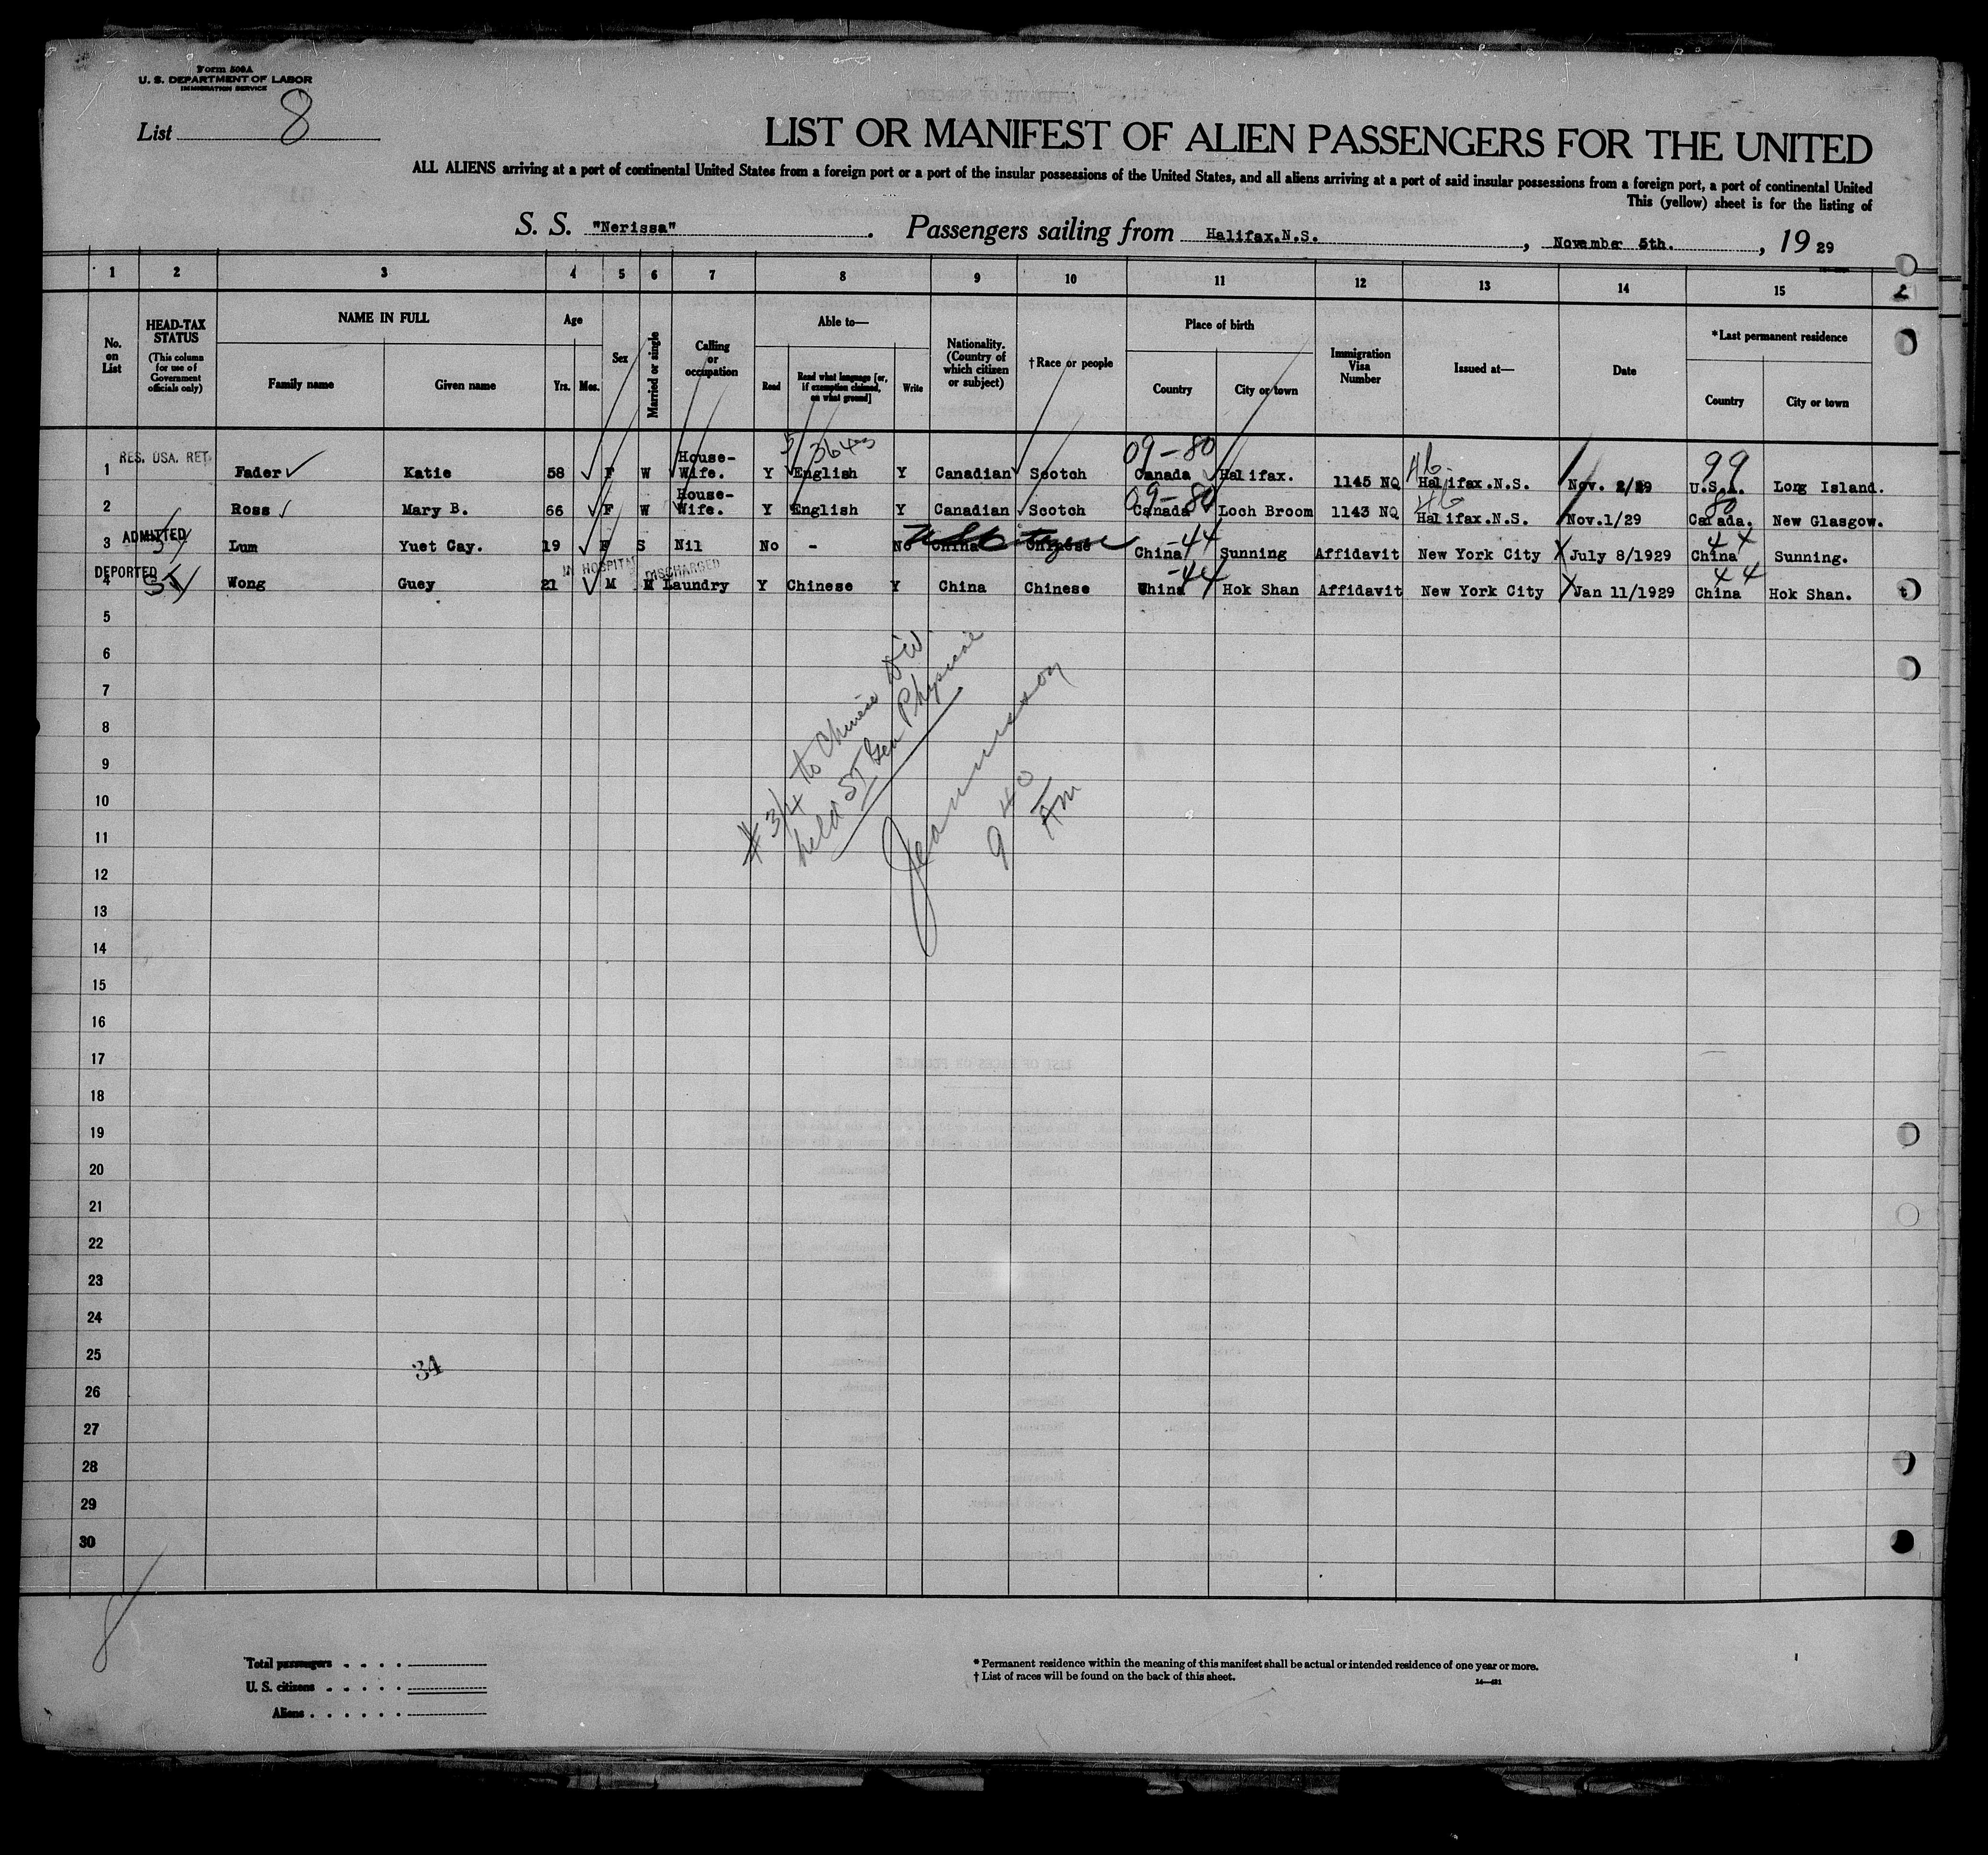 Form 500A
U. S. DEPARTMENT OF LABOR
IMMIGRATION SERVICE
List 8
LIST OR MANIFEST OF ALIEN PASSENGERS FOR THE UNITED
ALL ALIENS arriving at a port of continental United States from a foreign port or a port of the insular possessions of the United States, and all aliens arriving at a port of said insular possessions from a foreign port, a port of continental United
This (yellow) sheet is for the listing of
S. S. "Nerissa". Passengers sailing from Halifax.N.S., November 5th., 19 29
1 2 3 4 5 6 7 8 9 10 11 12 13 14 15
No. on List
HEAD-TAX STATUS
(This column for use of Government officials only)
NAME IN FULL
Family name Given name
Age
Yrs. Mos.
Sex
Married or single
Calling or occupation
Able to—
Read Read what language [or, if exemption claimed, on what ground] Write
Nationality. (Country of which citizen or subject)
†Race or people
Place of birth
Country City or town
Immigration Visa Number
Issued at—
Date
*Last permanent residence
Country City or town
1 RES. USA. RET. Fader Katie 58 F W House-Wife. Y English Y Canadian Scotch 09-80 Canada Halifax. 1145 NQ 46 Halifax.N.S. Nov. 2/29 99 U.S.A. Long Island.
2 Ross Mary B. 66 F W House-Wife. Y English Y Canadian Scotch 09-80 Canada Loch Broom 1143 NQ 46 Halifax.N.S. Nov.1/29 80 Canada. New Glasgow.
3 ADMITTED Lum Yuet Cay. 19 F S Nil No - No China Chinese China -44 Sunning Affidavit New York City July 8/1929 44 China Sunning.
IN HOSPITAL DISCHARGED
4 DEPORTED ST Wong Guey 21 M M Laundry Y Chinese Y China Chinese China -44 Hok Shan Affidavit New York City Jan 11/1929 44 China Hok Shan.
5
6
7
8
9
10
11
12
13
14
15
16
17
18
19
20
21
22
23
24
25
26
27
28
29
30
#3/4 to Chinese Div
held ST Gen Physical
9 40 Am
34
8
Total passengers
U. S. citizens
Aliens
* Permanent residence within the meaning of this manifest shall be actual or intended residence of one year or more.
† List of races will be found on the back of this sheet.